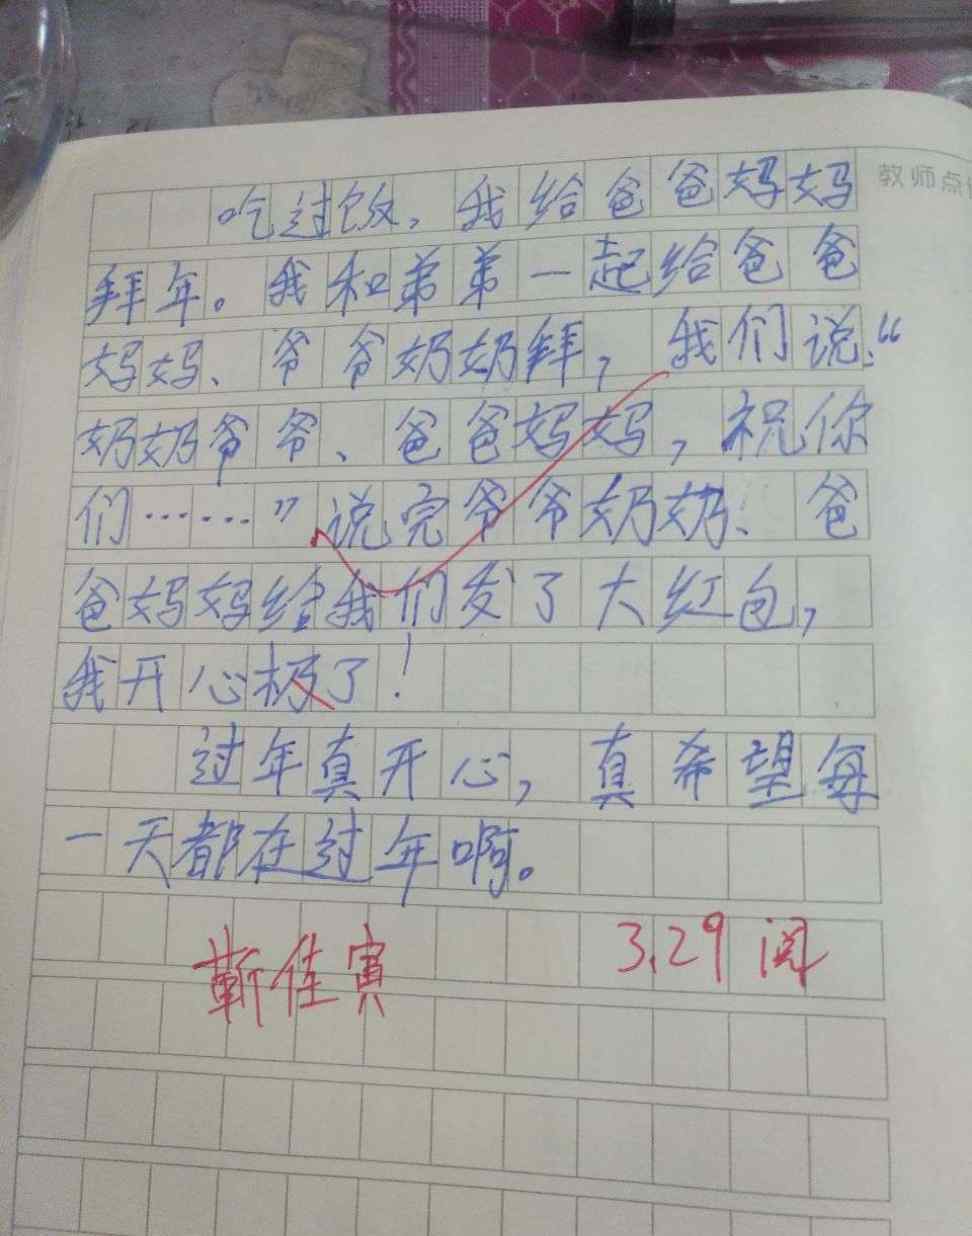 教师点
吃过饭,我给爸爸妈妈
拜年。我和弟弟一起给爸爸
妈妈、爷爷奶奶拜,我们说:“
奶奶爷爷、爸爸妈妈,祝你
们……”说完爷爷奶奶、爸
爸妈妈给我们发了大红包,
我开心极了!
过年真开心,真希望每
一天都在过年啊。
靳佳寅 3.29 阅